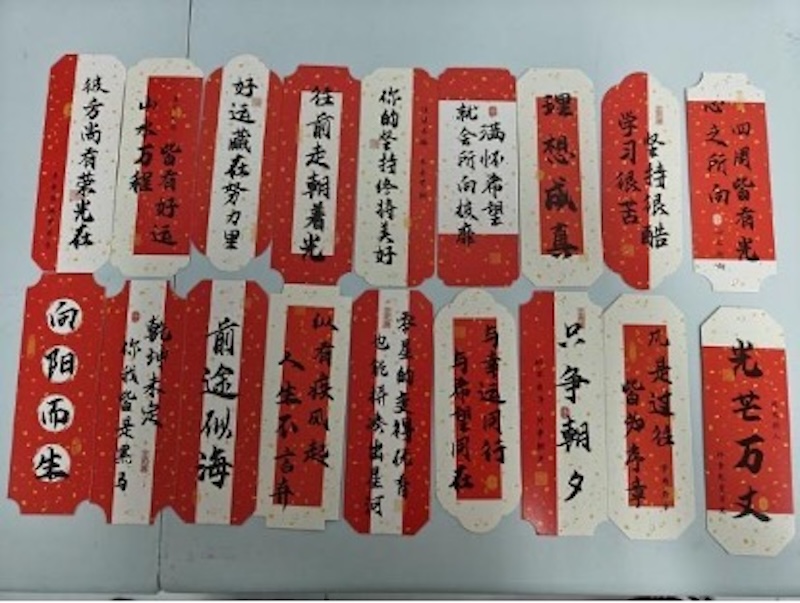 彼方尚有荣光在
山水万程
皆有好运
好运藏在努力里
往前走朝着光
你的坚持终将美好
满怀希望
就会所向披靡
理想成真
学习很苦
坚持很酷
心之所向
四周皆有光
向阳而生
乾坤未定
你我皆是黑马
前途似海
纵有疾风起
人生不言弃
零星的变得优秀
也能拼凑出星河
与幸运同行
与希望同在
只争朝夕
凡是过往
皆为序章
光芒万丈